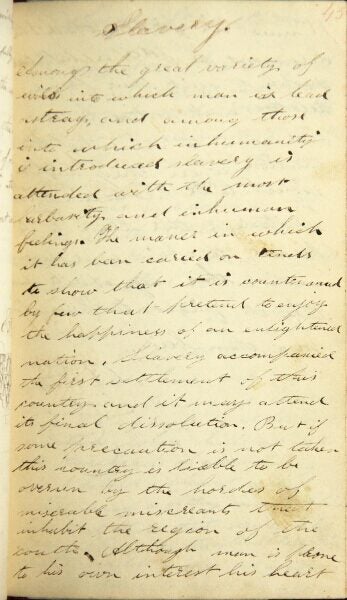 45
Slavery.
Among the great variety of
evils into which man is lead
astray, and among those
into which inhumanity
is introduced slavery is
attended with the most
barbarity and inhuman
feelings. The maner in which
it has been caried on tends
to show that it is countenanced
by few that pretend to enjoy
the happiness of an enlightened
nation. Slavery accompanied
the first settlement of this
country and it may attend
its final dissolution. But if
some precaution is not taken
this country is liable to be
overun by the hordes of
miserable miscreants that
inhabit the region of the
south. Although man is prone
to his own interest his heart